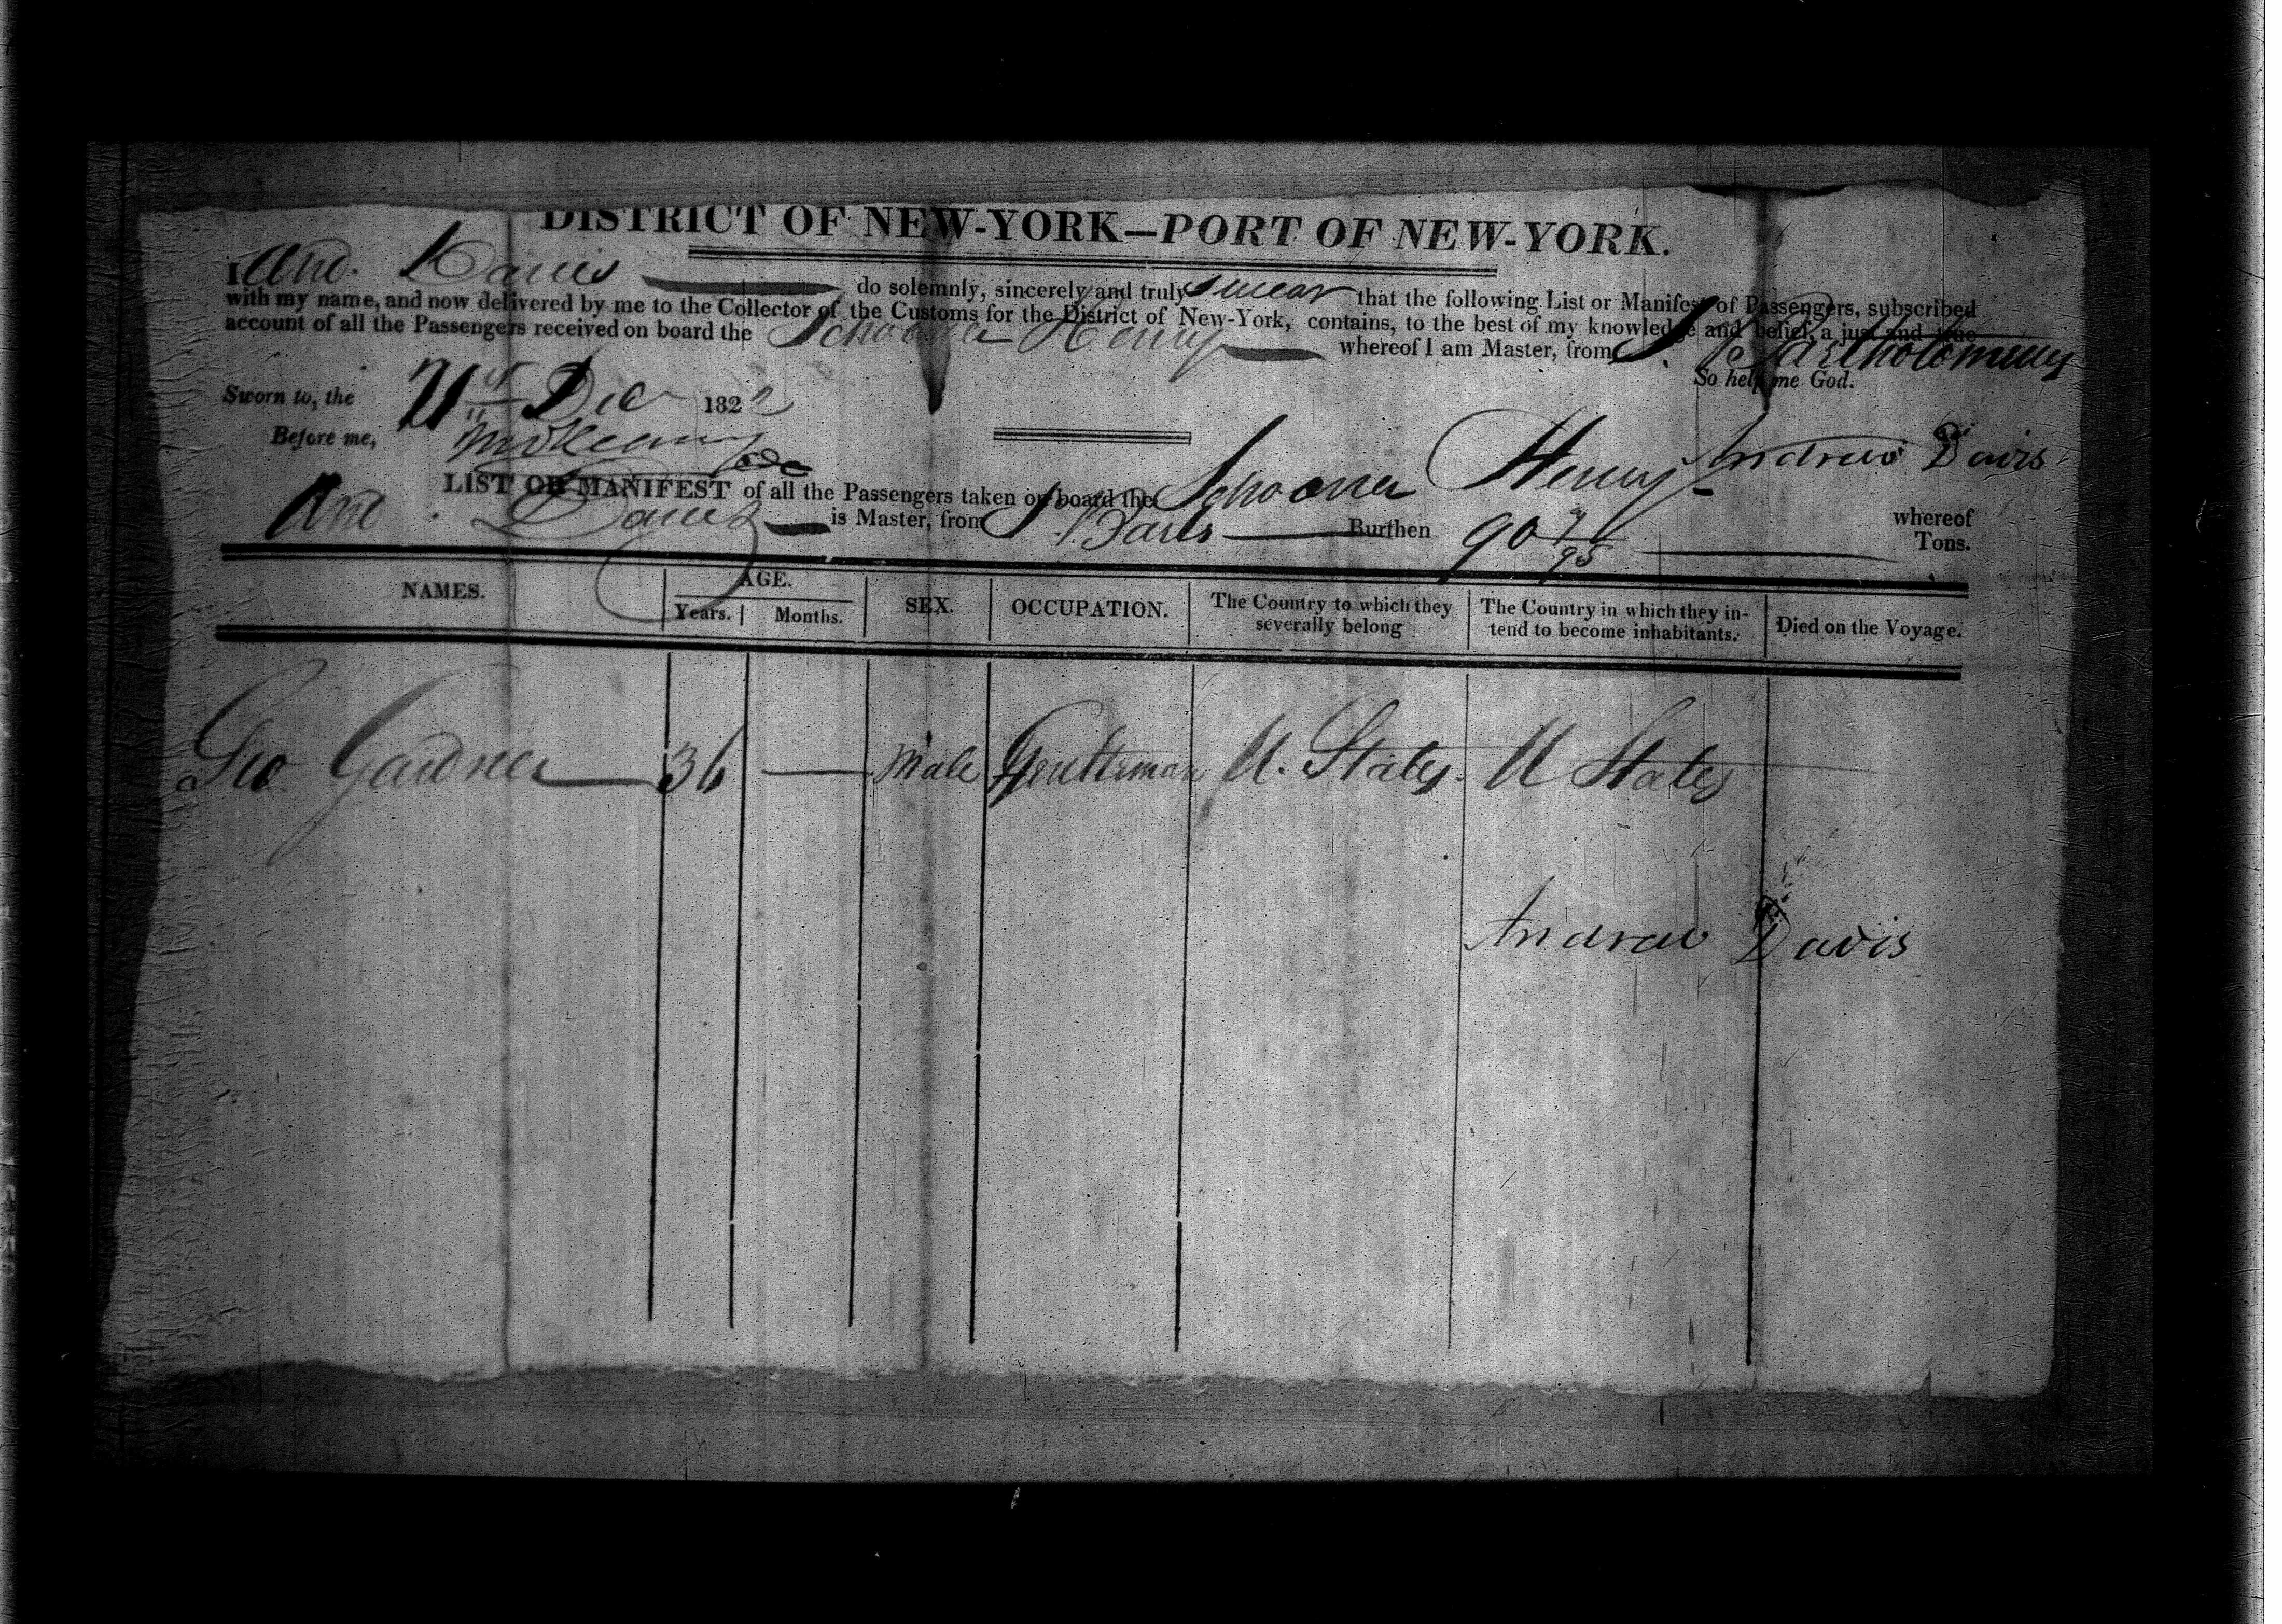 DISTRICT OF NEW-YORK—PORT OF NEW-YORK.
I And. Davis do solemnly, sincerely and truly swear that the following List or Manifest of Passengers, subscribed
with my name, and now delivered by me to the Collector of the Customs for the District of New-York, contains, to the best of my knowledge and belief, a just and true
account of all the Passengers received on board the Schooner Henry whereof I am Master, from St. Bartholomews
So help me God.
Sworn to, the 21st Dec 1822
Before me,
Andrew Davis
LIST OR MANIFEST of all the Passengers taken on board the Schooner Henry whereof
And. Davis is Master, from St Barts Burthen 90 /95 Tons.
NAMES. AGE. SEX. OCCUPATION. The Country to which they severally belong The Country in which they intend to become inhabitants. Died on the Voyage.
Years. Months.
Geo Gardner 36 — Male Gentleman U. States. U States
Andrew Davis